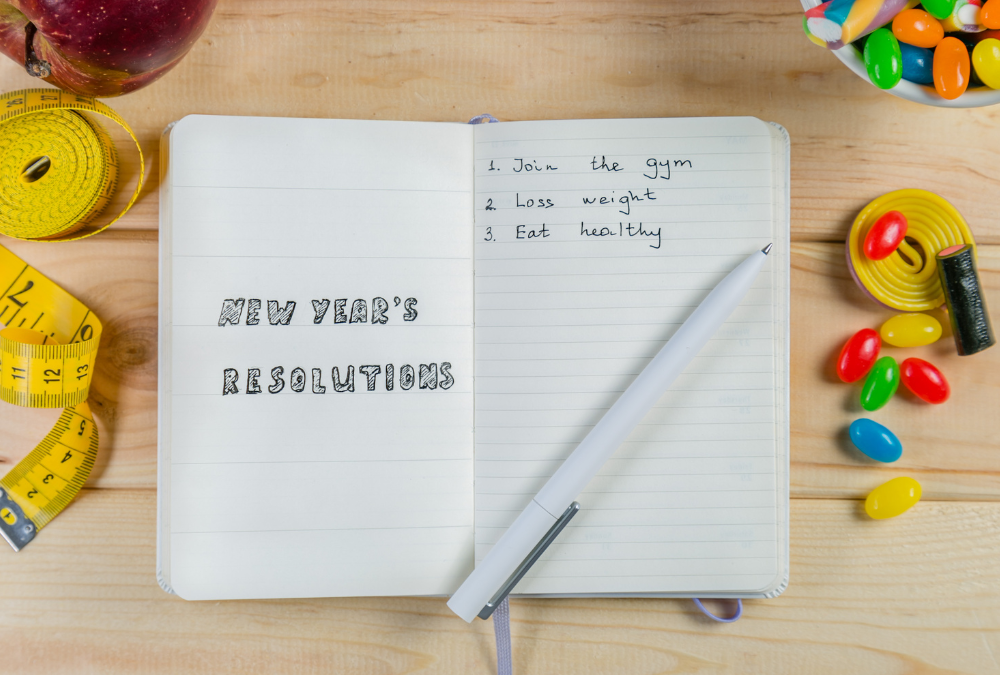 NEW YEAR'S
RESOLUTIONS
1. Join the gym
2. Loss weight
3. Eat healthy
11 12 13
2
5
4
3
2
1